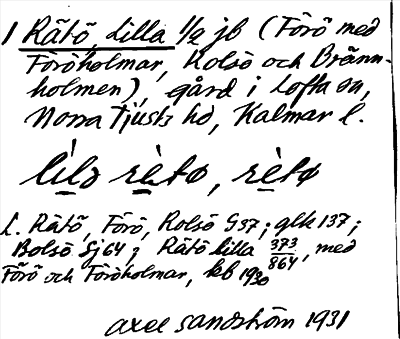 1 Rätö, Lilla 1/2 jb (Förö med
Föröholmar, Kolsö och Bränn-
holmen), gård i Lofta sn,
Norra Tjusts hd, Kalmar l.
lìlə rètø, rètø
L. Rätö, Förö, Rolsö G37; glk 137;
Bolsö Sj64; Rätö lilla 373/864, med
Förö och Föröholmar, kb 1930
Axel Sandström 1931